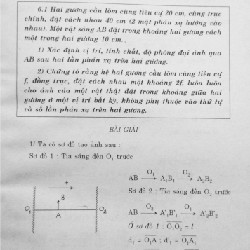 6.) Hai gương cầu lõm cùng tiêu cự 20 cm, cùng trục
chính, đặt cách nhau 40 cm (2 mặt phản xạ hướng vào
nhau). Một vật sáng AB đặt trong khoảng hai gương cách
một trong hai gương 10 cm.
1) Xác định vị trí, tính chất, độ phóng đại ảnh qua
AB sau hai lần phản xạ trên hai gương.
2) Chứng tỏ rằng hệ hai gương cầu lõm cùng tiêu cự
f, đồng trục, đặt cách nhau một khoảng 2f, luôn luôn
cho ảnh của một vật thật đặt trong khoảng giữa hai
gương ở một vị trí bất kỳ, không phụ thuộc vào thứ tự
và số lần phản xạ trên hai gương.
BÀI GIẢI
1/ Ta có sơ đồ tạo ảnh sau :
Sơ đồ 1 : Tia sáng đến O₁ trước
AB O₁ → A₁B₁ O₂ → A₂B₂
Sơ đồ 2 : Tia sáng đến O₂ trước
AB O₂ → A'₁B'₁ O₁ → A'₂B'₂
O₁ B A O₂
Ở sơ đồ 1 :
d₁ = O₁A